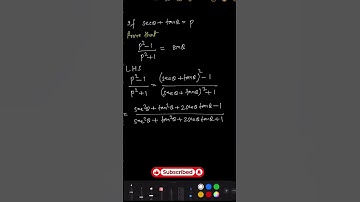 If secθ + tanθ = p
Prove that
p²-1/p²+1 = sinθ
LHS
p²-1/p²+1 = (secθ + tanθ)² - 1/(secθ + tanθ)² + 1
= sec²θ + tan²θ + 2secθ tanθ - 1/sec²θ + tan²θ + 2secθ tanθ + 1
Subscribed